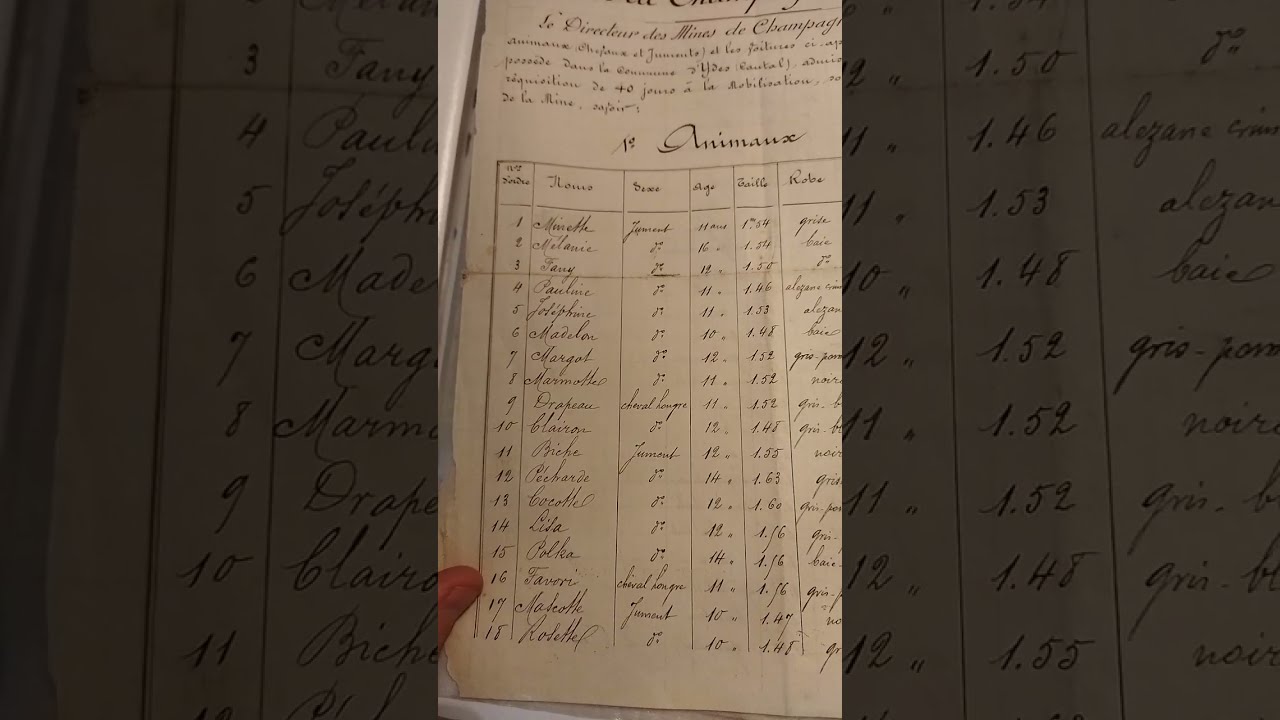 Le Directeur des Mines de Champagn
animaux (Chevaux et Juments) et les Voitures ci-ap
possède dans la Commune d'Ydes (Cantal), admi
réquisition de 40 jours à la Mobilisation, so
de la Mine, savoir:
1º Animaux
Nos d'ordre Noms Sexe Age Taille Robe
1 Minette Jument 11 ans 1m54 grise
2 Mélanie dº 16 " 1.54 baie
3 Fany dº 12 " 1.50 dº
4 Pauline dº 11 " 1.46 alezane crin
5 Joséphine dº 11 " 1.53 alezan
6 Madelon dº 10 " 1.48 baie
7 Margot dº 12 " 1.52 gris-pom
8 Marmotte dº 11 " 1.52 noire
9 Drapeau cheval hongre 11 " 1.52 gris-b
10 Clairon dº 12 " 1.48 gris-b
11 Biche Jument 12 " 1.55 noir
12 Pécharde dº 14 " 1.63 gris
13 Cocotte dº 12 " 1.60 gris-pom
14 Lisa dº 12 " 1.56 gris-
15 Polka dº 14 " 1.56 baie-
16 Favori cheval hongre 11 " 1.56 gris-p
17 Mascotte Jument 10 " 1.47 no
18 Rosette dº 10 " 1.48 gr